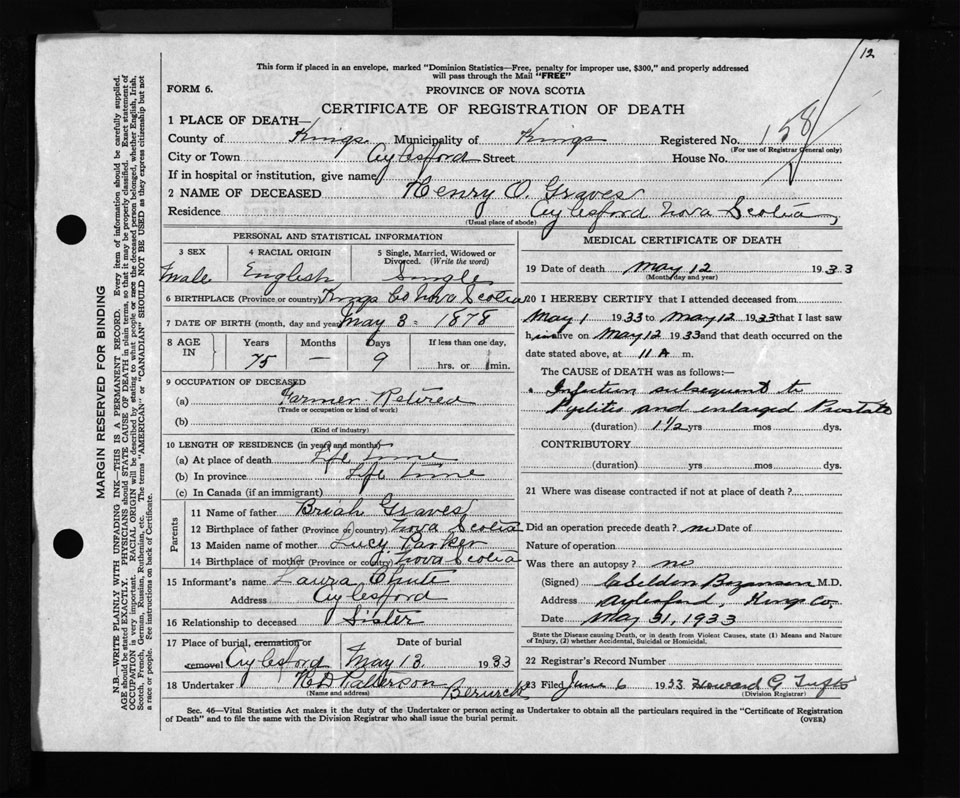 12
This form if placed in an envelope, marked "Dominion Statistics—Free, penalty for improper use, $300," and properly addressed
will pass through the Mail "FREE"
FORM 6.
PROVINCE OF NOVA SCOTIA
CERTIFICATE OF REGISTRATION OF DEATH
1 PLACE OF DEATH—
County of Kings Municipality of Kings Registered No. 158
(For use of Registrar General only)
City or Town Aylesford Street House No.
If in hospital or institution, give name
2 NAME OF DECEASED Henry O. Graves
Residence Aylesford Nova Scotia
(Usual place of abode)
PERSONAL AND STATISTICAL INFORMATION
3 SEX 4 RACIAL ORIGIN 5 Single, Married, Widowed or
Divorced. (Write the word)
male English Single
6 BIRTHPLACE (Province or country) Kings Co Nova Scotia
7 DATE OF BIRTH (month, day and year) May 3 - 1878
8 AGE IN Years Months Days If less than one day,
75 — 9 hrs. or min.
9 OCCUPATION OF DECEASED
(a) Farmer Retired
(Trade or occupation or kind of work)
(b)
(Kind of industry)
10 LENGTH OF RESIDENCE (in years and months)
(a) At place of death Life time
(b) In province Life time
(c) In Canada (if an immigrant)
Parents
11 Name of father Briah Graves
12 Birthplace of father (Province or country) Nova Scotia
13 Maiden name of mother Lucy Parker
14 Birthplace of mother (Province or country) Nova Scotia
15 Informant's name Laura Chute
Address Aylesford
16 Relationship to deceased Sister
17 Place of burial, cremation or Date of burial
removal Aylesford May 13. 1933
18 Undertaker Patterson Berwick
(Name and address)
MEDICAL CERTIFICATE OF DEATH
19 Date of death May 12 1933
(Month, day and year)
20 I HEREBY CERTIFY that I attended deceased from
May 1 1933 to May 12 1933 that I last saw
him alive on May 12 1933 and that death occurred on the
date stated above, at 11 A m.
The CAUSE of DEATH was as follows:—
Infection subsequent to
Pyelitis and enlarged Prostate
(duration) 1½ yrs mos dys.
CONTRIBUTORY
(duration) yrs mos dys.
21 Where was disease contracted if not at place of death?
Did an operation precede death? no Date of
Nature of operation
Was there an autopsy? no
(Signed) M.D.
Address Aylesford, Kings Co.
Date May 31, 1933
State the Disease causing Death, or in death from Violent Causes, state (1) Means and Nature
of Injury, (2) whether Accidental, Suicidal or Homicidal.
22 Registrar's Record Number
23 Filed June 6 1933 Howard G Tufts
(Division Registrar)
Sec. 46—Vital Statistics Act makes it the duty of the Undertaker or person acting as Undertaker to obtain all the particulars required in the "Certificate of Registration
of Death" and to file the same with the Division Registrar who shall issue the burial permit.
(OVER)
MARGIN RESERVED FOR BINDING
N.B.—WRITE PLAINLY WITH UNFADING INK—THIS IS A PERMANENT RECORD. Every item of information should be carefully supplied.
AGE should be stated EXACTLY. PHYSICIANS should STATE CAUSE OF DEATH in plain terms, so that it may be properly classified. Exact statement of
OCCUPATION is very important. RACIAL ORIGIN will be described by stating to what people or race the deceased person belonged, whether English, Irish,
Scotch, French, German, Russian, Ruthenian, etc. The terms "AMERICAN" or "CANADIAN" SHOULD NOT BE USED as they express citizenship but not
a race or people. See instructions on back of Certificate.